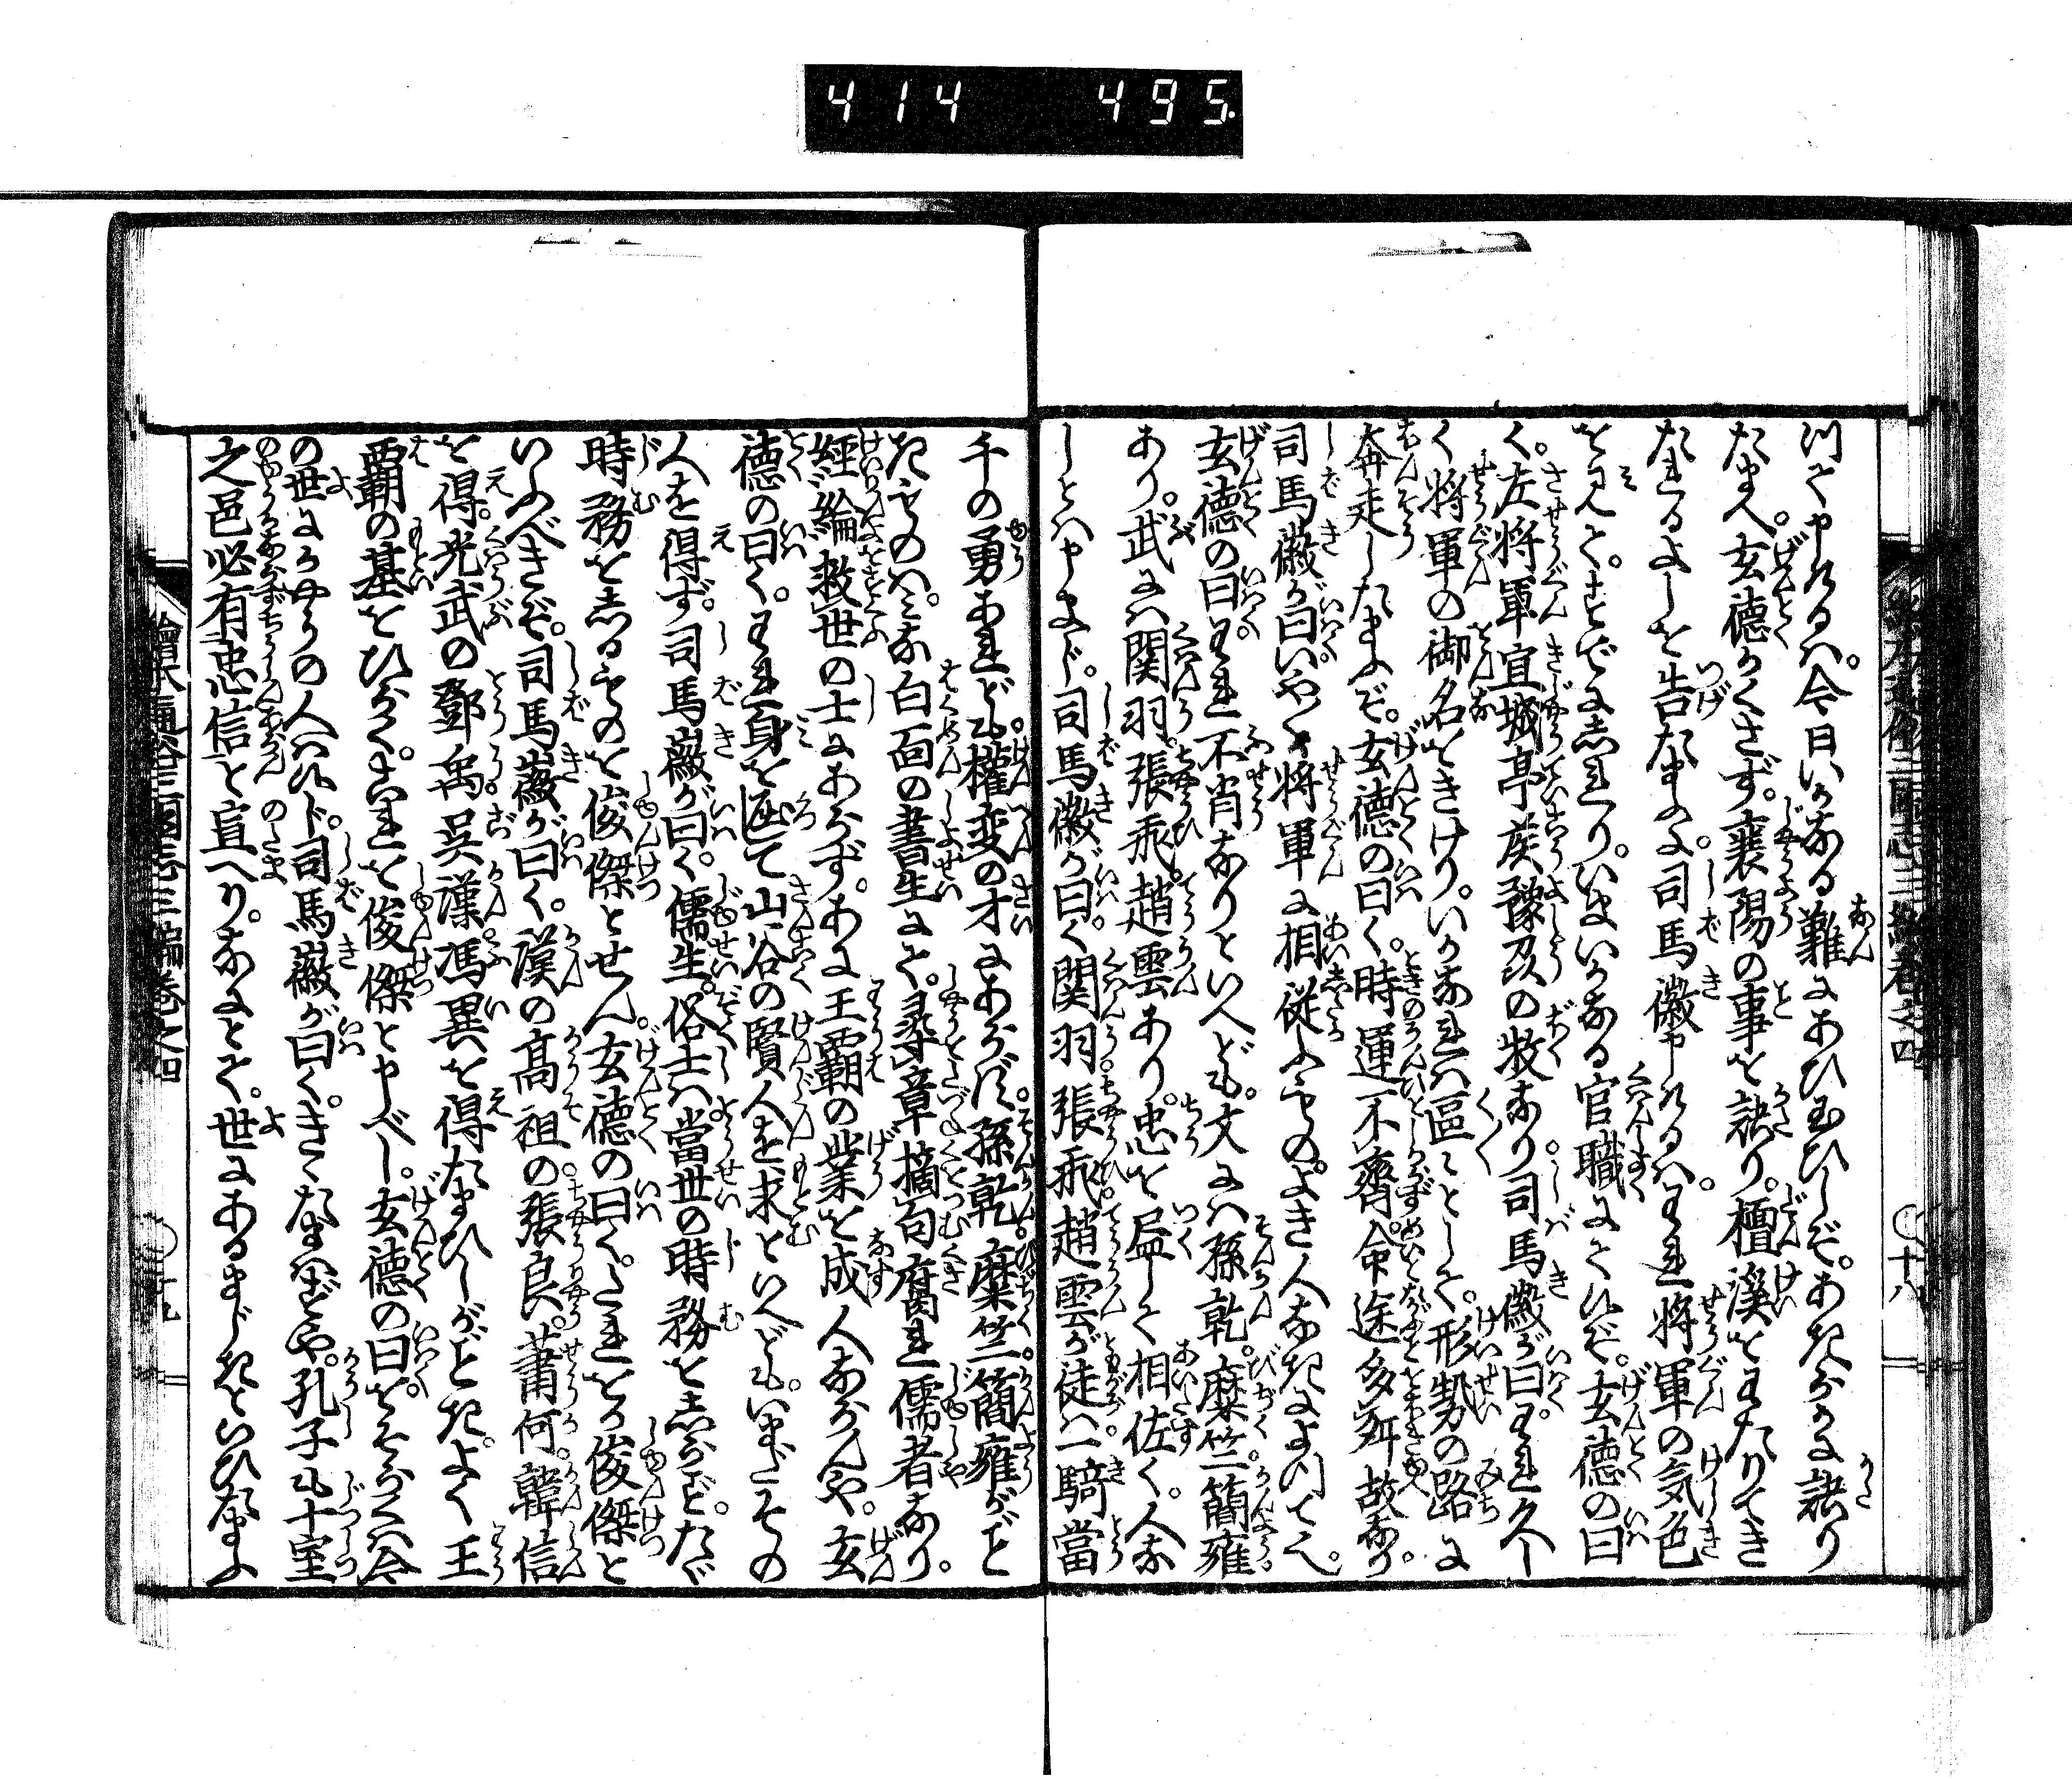 414 495.
川て申けるハ。今日いかなる難にあひ玉ひしぞ。あきらかに訣り
たまへ。玄徳かくさず。襄陽の事を訣り。檀溪をわたりてき
たれるよしを告たまふに。司馬徽申けるハ。われ将軍の気色
を見て。すでにしれり。いまいかなる官職にて候ぞ。玄徳の曰
く。左将軍宜城亭侯豫州の牧なり司馬徽が曰。われ久し
く将軍の御名をきけり。いかなれハ區〻として。形勢の路に
奔走したまふぞ。玄徳の曰く。時運不齊。命途多舛故なり。
司馬徽が曰。いやく将軍に相従ふもの。よき人なきによつて也。
玄徳の曰。われ不肖なりといへども。文にハ孫乾。糜竺。簡雍
あり。武にハ関羽。張飛。趙雲あり。忠を盡して相佐く。人な
しとハ申まじ。司馬徽が曰く関羽。張飛。趙雲が徒ハ一騎當
千の勇あれども。權変の才にあらず。孫乾。糜竺。簡雍がごと
きものハ。みな白面の書生にて。尋章摘句腐れ儒者なり。
經綸救世の士にあらず。あに王覇の業を成人ならんや。玄
徳の曰く。われ身を側て山谷の賢人を求といへども。いまだその
人を得ず。司馬徽が曰く。儒生。俗士ハ當世の時務をしらず。たゞ
時務をしるものを俊傑とせん。玄徳の曰く。たれをか俊傑と
いふべきぞ。司馬徽が曰く。漢の髙祖の。張良。蕭何。韓信
を得。光武の鄧禹。呉漢。馮異を得たまひしがごとき。よく王
覇の基をひらく。これを俊傑と申べし。玄徳の曰。をそらくハ今
の世にかやうの人ハ候ハじ。司馬徽が曰く。きくたまハずや。孔子も十室
之邑必有忠信と宣へり。なにとて。世にあるまじきといひたまふ
繪本通俗三國志三編巻之四
十八